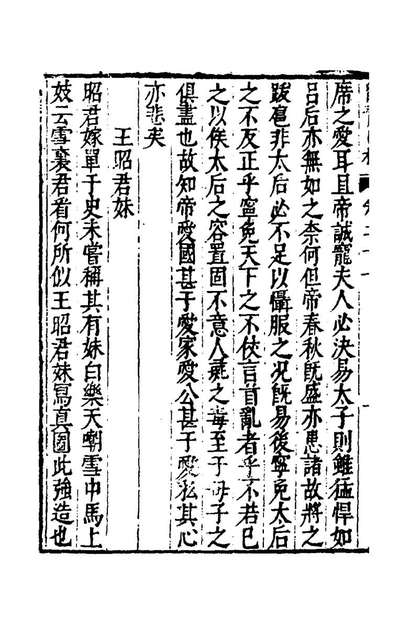 席之愛耳且帝誠寵夫人必决易太子則雖猛悍如
吕后亦無如之奈何但帝春秋既盛亦患諸故將之
跋扈非太后必不足以懾服之况既易後寧免太后
之不反正乎寧免天下之不佽言首亂者乎不若已
之以俟太后之容置固不意人彘之毒至于母子之
俱盡也故知帝愛國甚于愛家愛公甚于愛私其心
亦悲矣
王昭君妹
昭君嫁單于史未嘗稱其有妹白樂天嘲雪中馬上
妓云雪裏君看何所似王昭君妹寫真圖此強造也